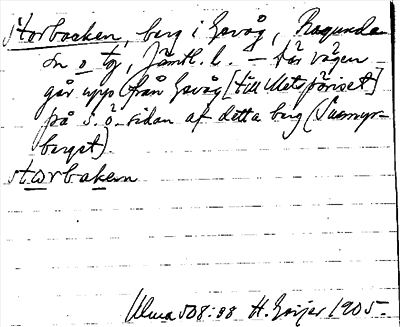 Storbacken, berg i Gevåg, Ragunda
sn o tg, Jämtl. l. – där vägen
går upp från Gevåg [till Mets
på s. ö. sidan af detta berg (
berget)
storbakem
Ulma 508:88 H. Geijer 1905.